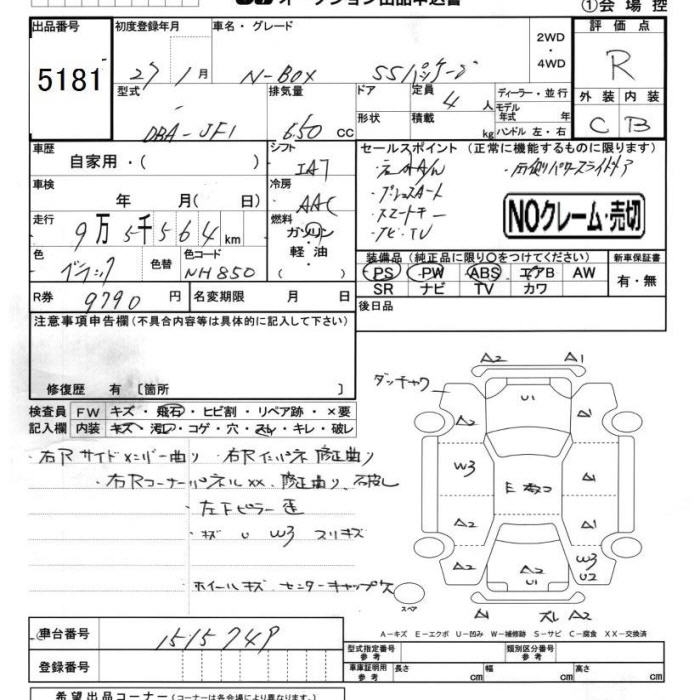 オークション出品申込書 ①会場控
出品番号 初度登録年月 車名・グレード 評価点
5181 27 1月 N-BOX SSパッケージ 2WD ・ 4WD R
型式 排気量 ドア 定員 4人 ディーラー・並行 外装 内装
DBA-JF1 650 CC 形状 積載 kg モデル年式 年 ハンドル 左・右 C B
車歴 自家用・( ) シフト IAT セールスポイント (正常に機能するものに限ります)
車検 年 月( 日) 冷房 AAC ・プッシュスタート
・スマートキー
・ナビ・TV
NOクレーム・売切
走行 9万5千564km 燃料 ガソリン・軽油 ( )
色 ブラック 色替 色コード NH850
装備品 (純正品に限り○をつけてください) 新車保証書
PS PW ABS エアB AW 有・無
SR ナビ TV カワ
R券 9790円 名変期限 月 日 後日品
注意事項申告欄 (不具合内容等は具体的に記入して下さい)
修復歴 有 [箇所 ]
検査員 FW キズ・飛石・ヒビ割・リペア跡・×要
記入欄 内装 キズ・汚レ・コゲ・穴・スレ・キレ・破レ
・右Rサイドメンバー曲り ・右Rインパネ修正曲り
・右Rコーナーパネルxx、修正曲り、
・左下ピラー歪
・キズ U W3 スリキズ
ホイールキズ センターキャップ欠
A2 A1
U1
A2 A2
W3 A1
A2 A1
W3
U2
A2 A2 U1
スペア A1 ズレ A2
A-キズ E-エクボ U-凹み W-補修跡 S-サビ C-腐食 XX-交換済
車台番号 1515749
登録番号
型式指定番号 参考 類別区分番号 参考
車庫証明用 参考 長さ cm 幅 cm 高さ cm
希望出品コーナー (コーナーは各会場により異なります)